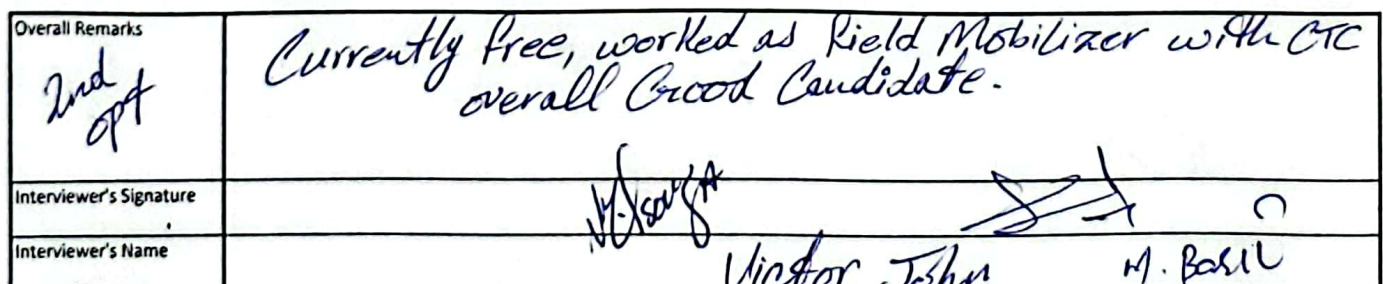 Overall Remarks
2nd
opt
Currently free, worked as Field Mobilizer with CTC
overall Good Candidate.
Interviewer's Signature
Interviewer's Name
John M. Basil